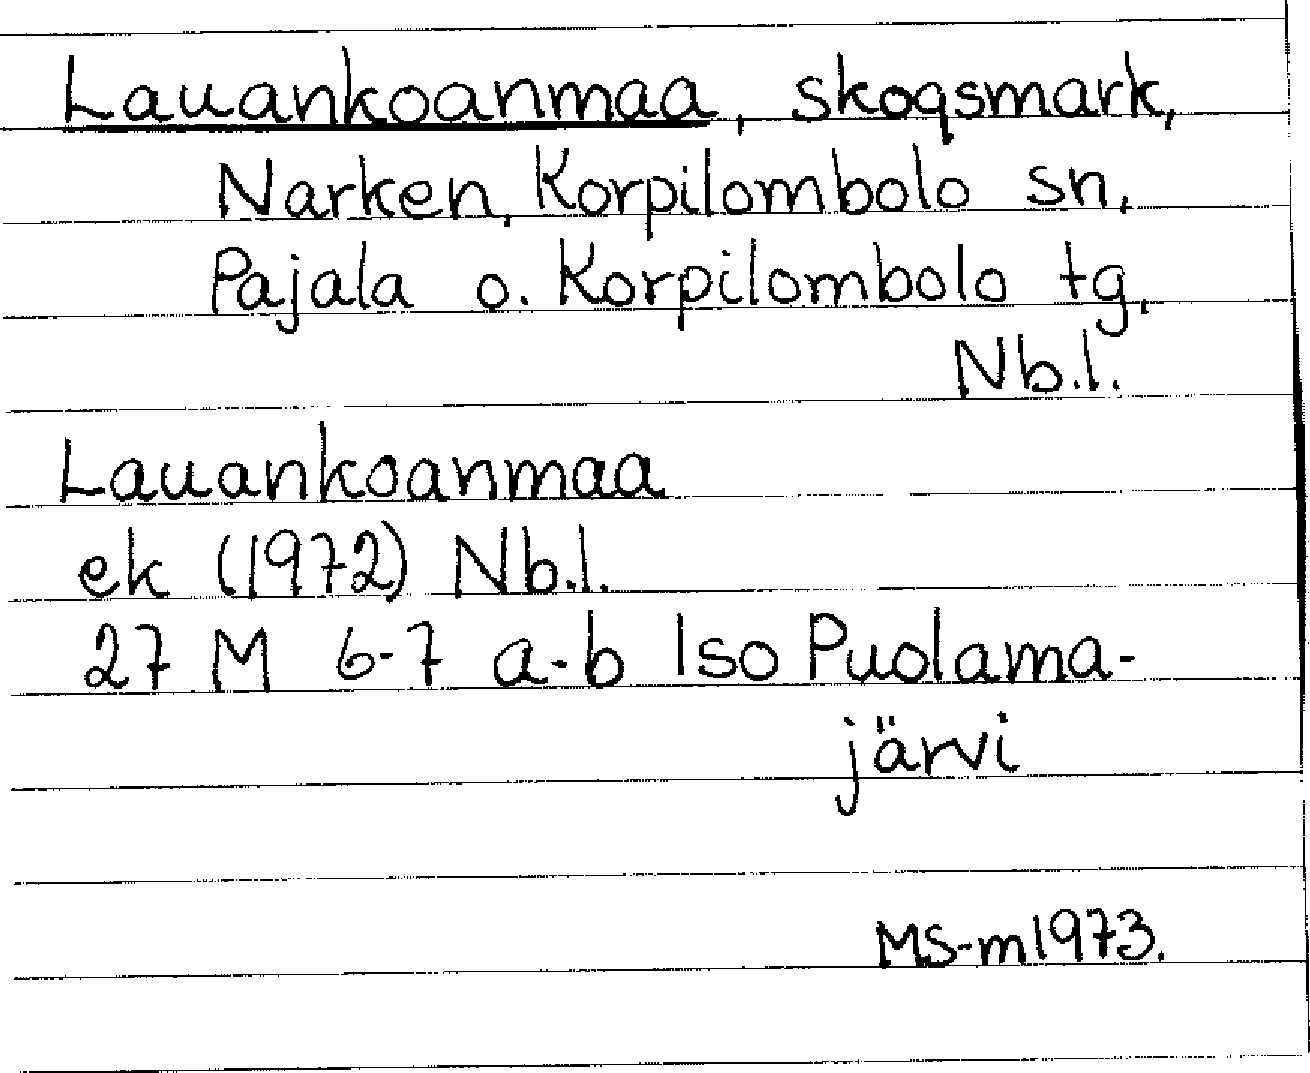 Lauankoanmaa, skogsmark,
Narken, Korpilombolo sn,
Pajala o. Korpilombolo tg,
Nb.l.
Lauankoanmaa
ek (1972) Nb.l.
27 M 6-7 a-b Iso Puolama-
järvi
MS-m1973.